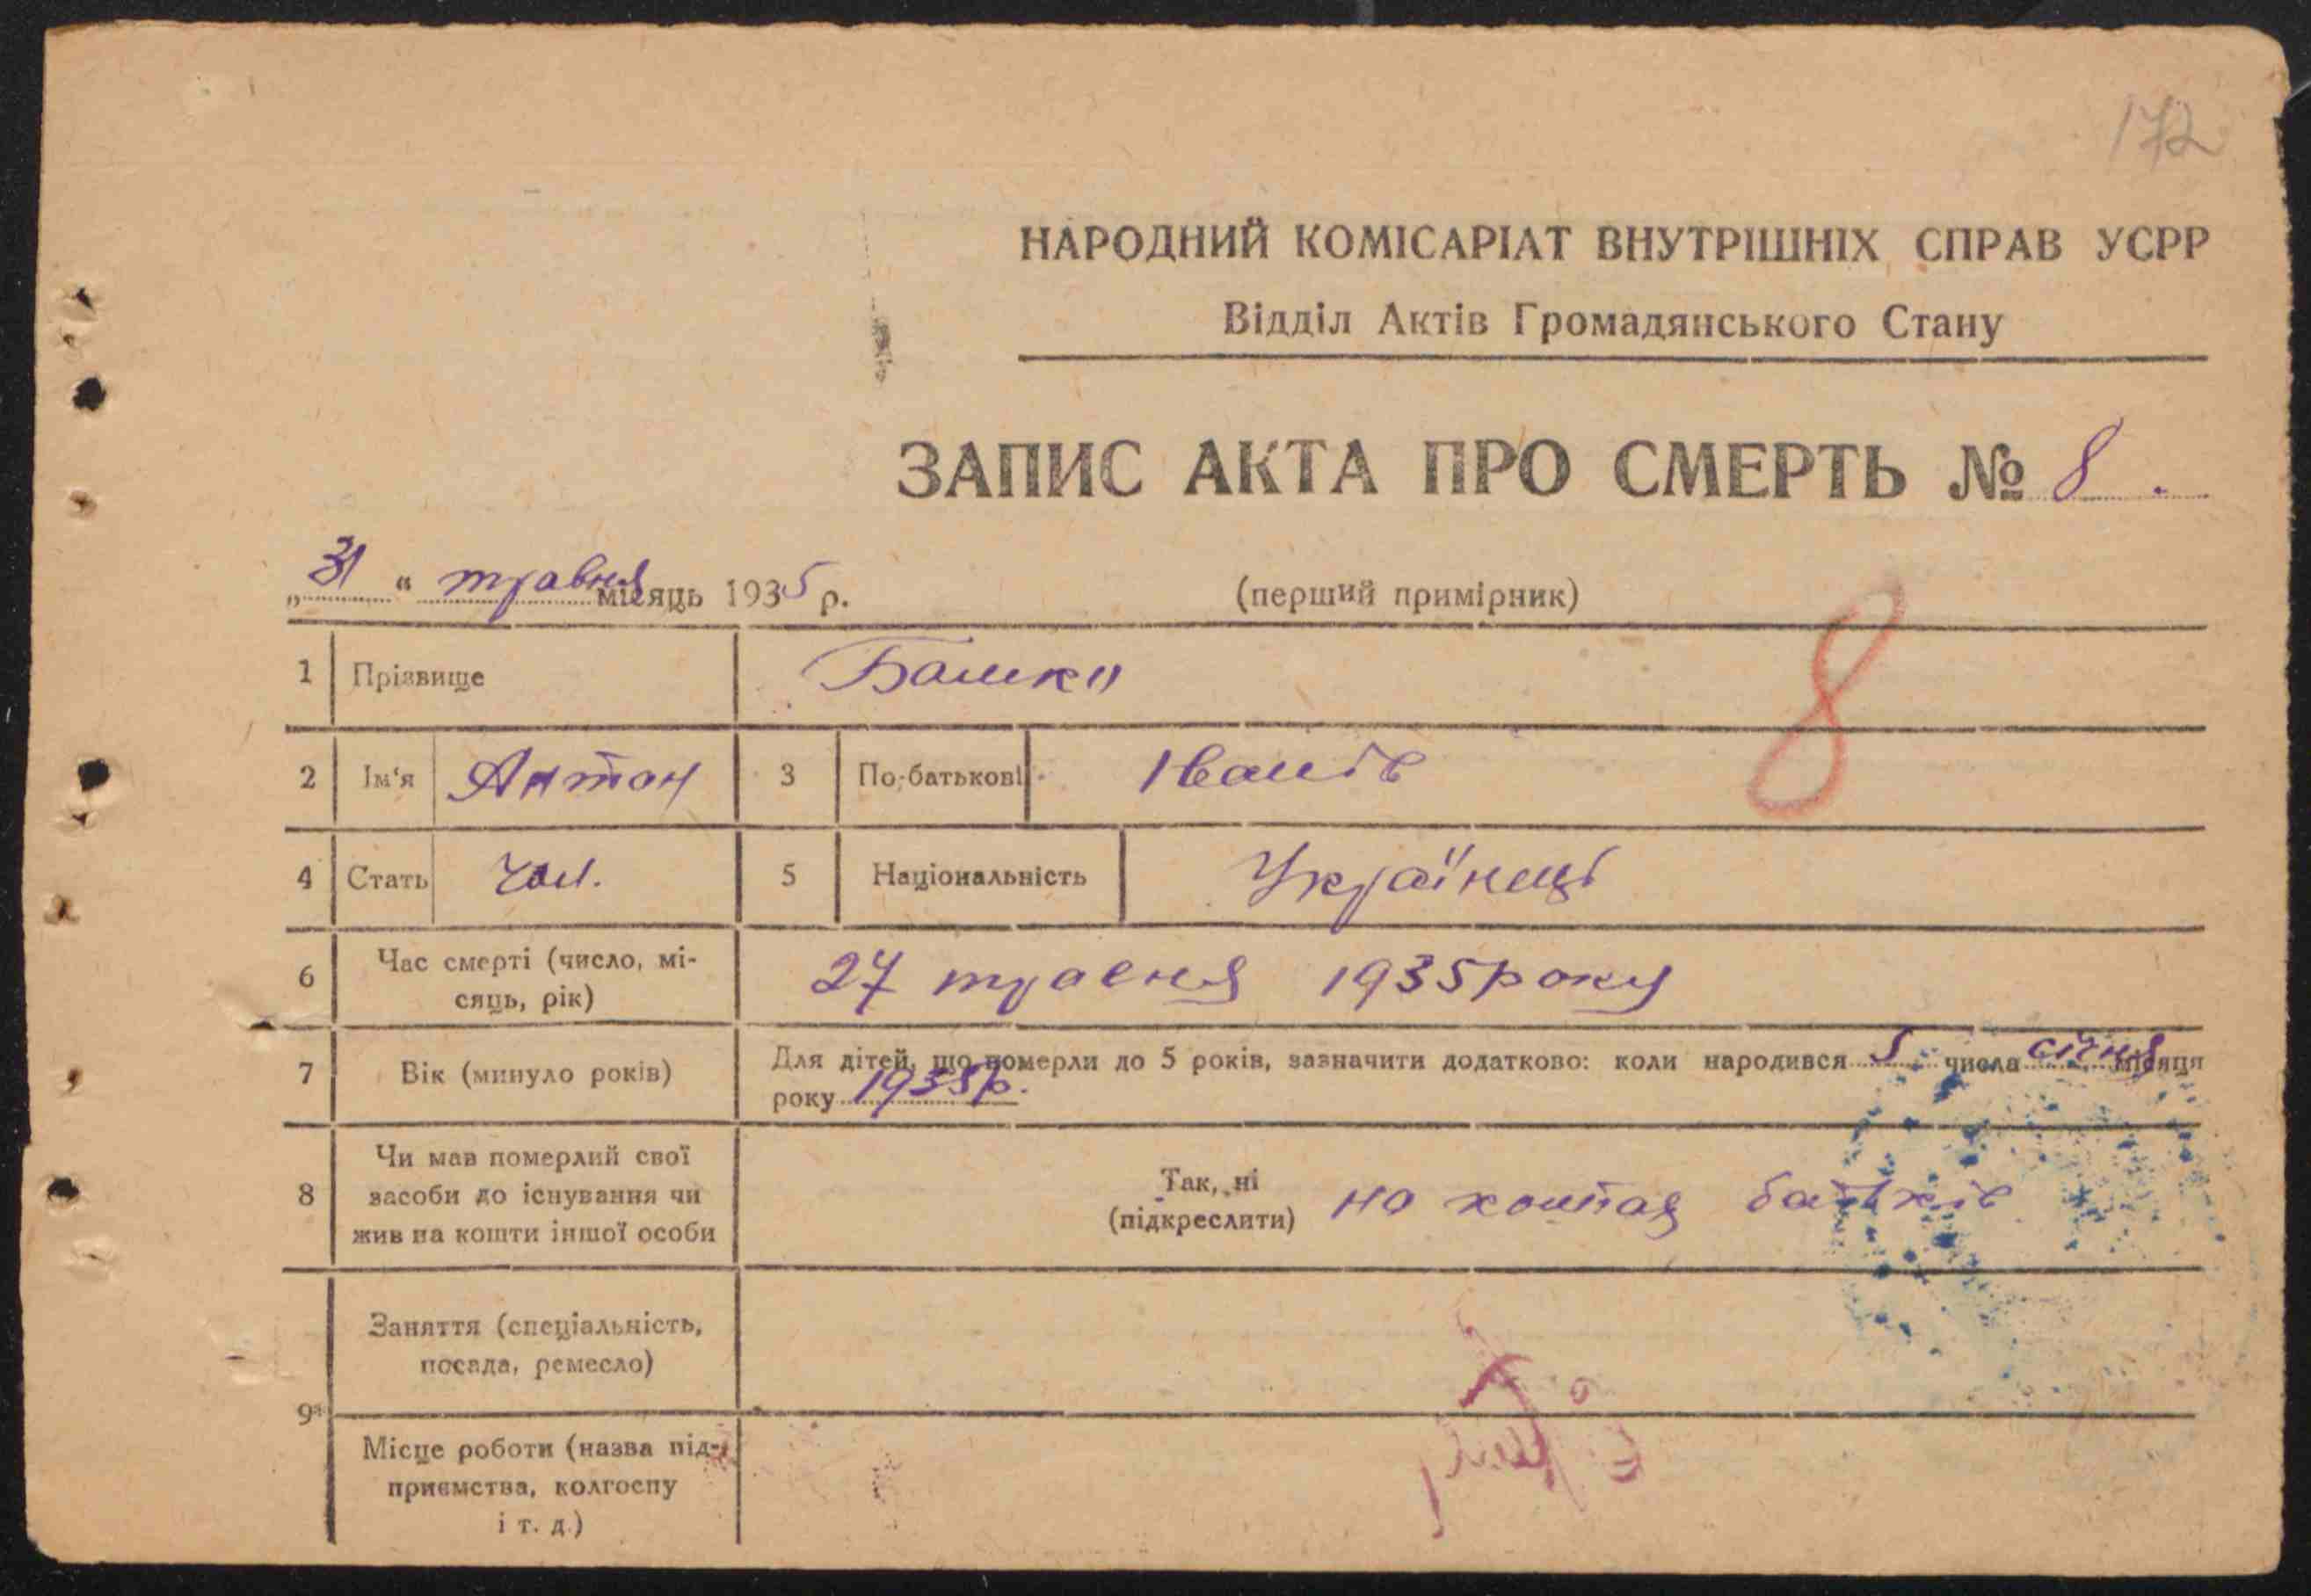 172
НАРОДНИЙ КОМІСАРІАТ ВНУТРІШНІХ СПРАВ УСРР
Відділ Актів Громадянського Стану
ЗАПИС АКТА ПРО СМЕРТЬ № 8.
„31“ травня місяць 1935 р. (перший примірник)
8
1 Прізвище Башко
2 Ім'я Антон 3 По-батькові Іванів
4 Стать Чол. 5 Національність Українець
6 Час смерті (число, мі-
сяць, рік) 27 травня 1935 року
7 Вік (минуло років) Для дітей, що померли до 5 років, зазначити додатково: коли народився 5 числа січня місяця
року 1935 р.
8 Чи мав померлий свої
засоби до існування чи
жив на кошти іншої особи
Так, ні
(підкреслити) на коштах батьків
9а Заняття (спеціальність,
посада, ремесло)
Місце роботи (назва під-
приємства, колгоспу
і т. д.)